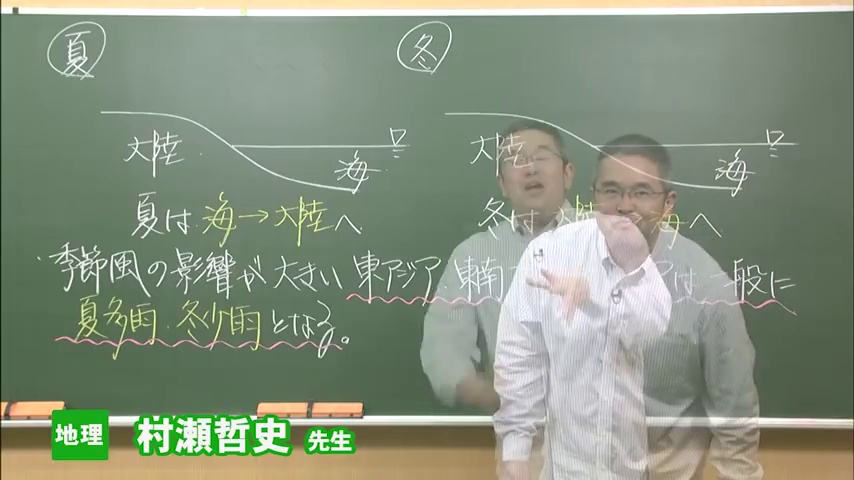 夏
冬
大陸
海
大陸
海
夏は 海→大陸へ
冬は 大陸 海へ
季節風の影響が大きい 東アジア・東南 アは一般に
夏多雨・冬少雨となる。
地理 村瀬哲史 先生